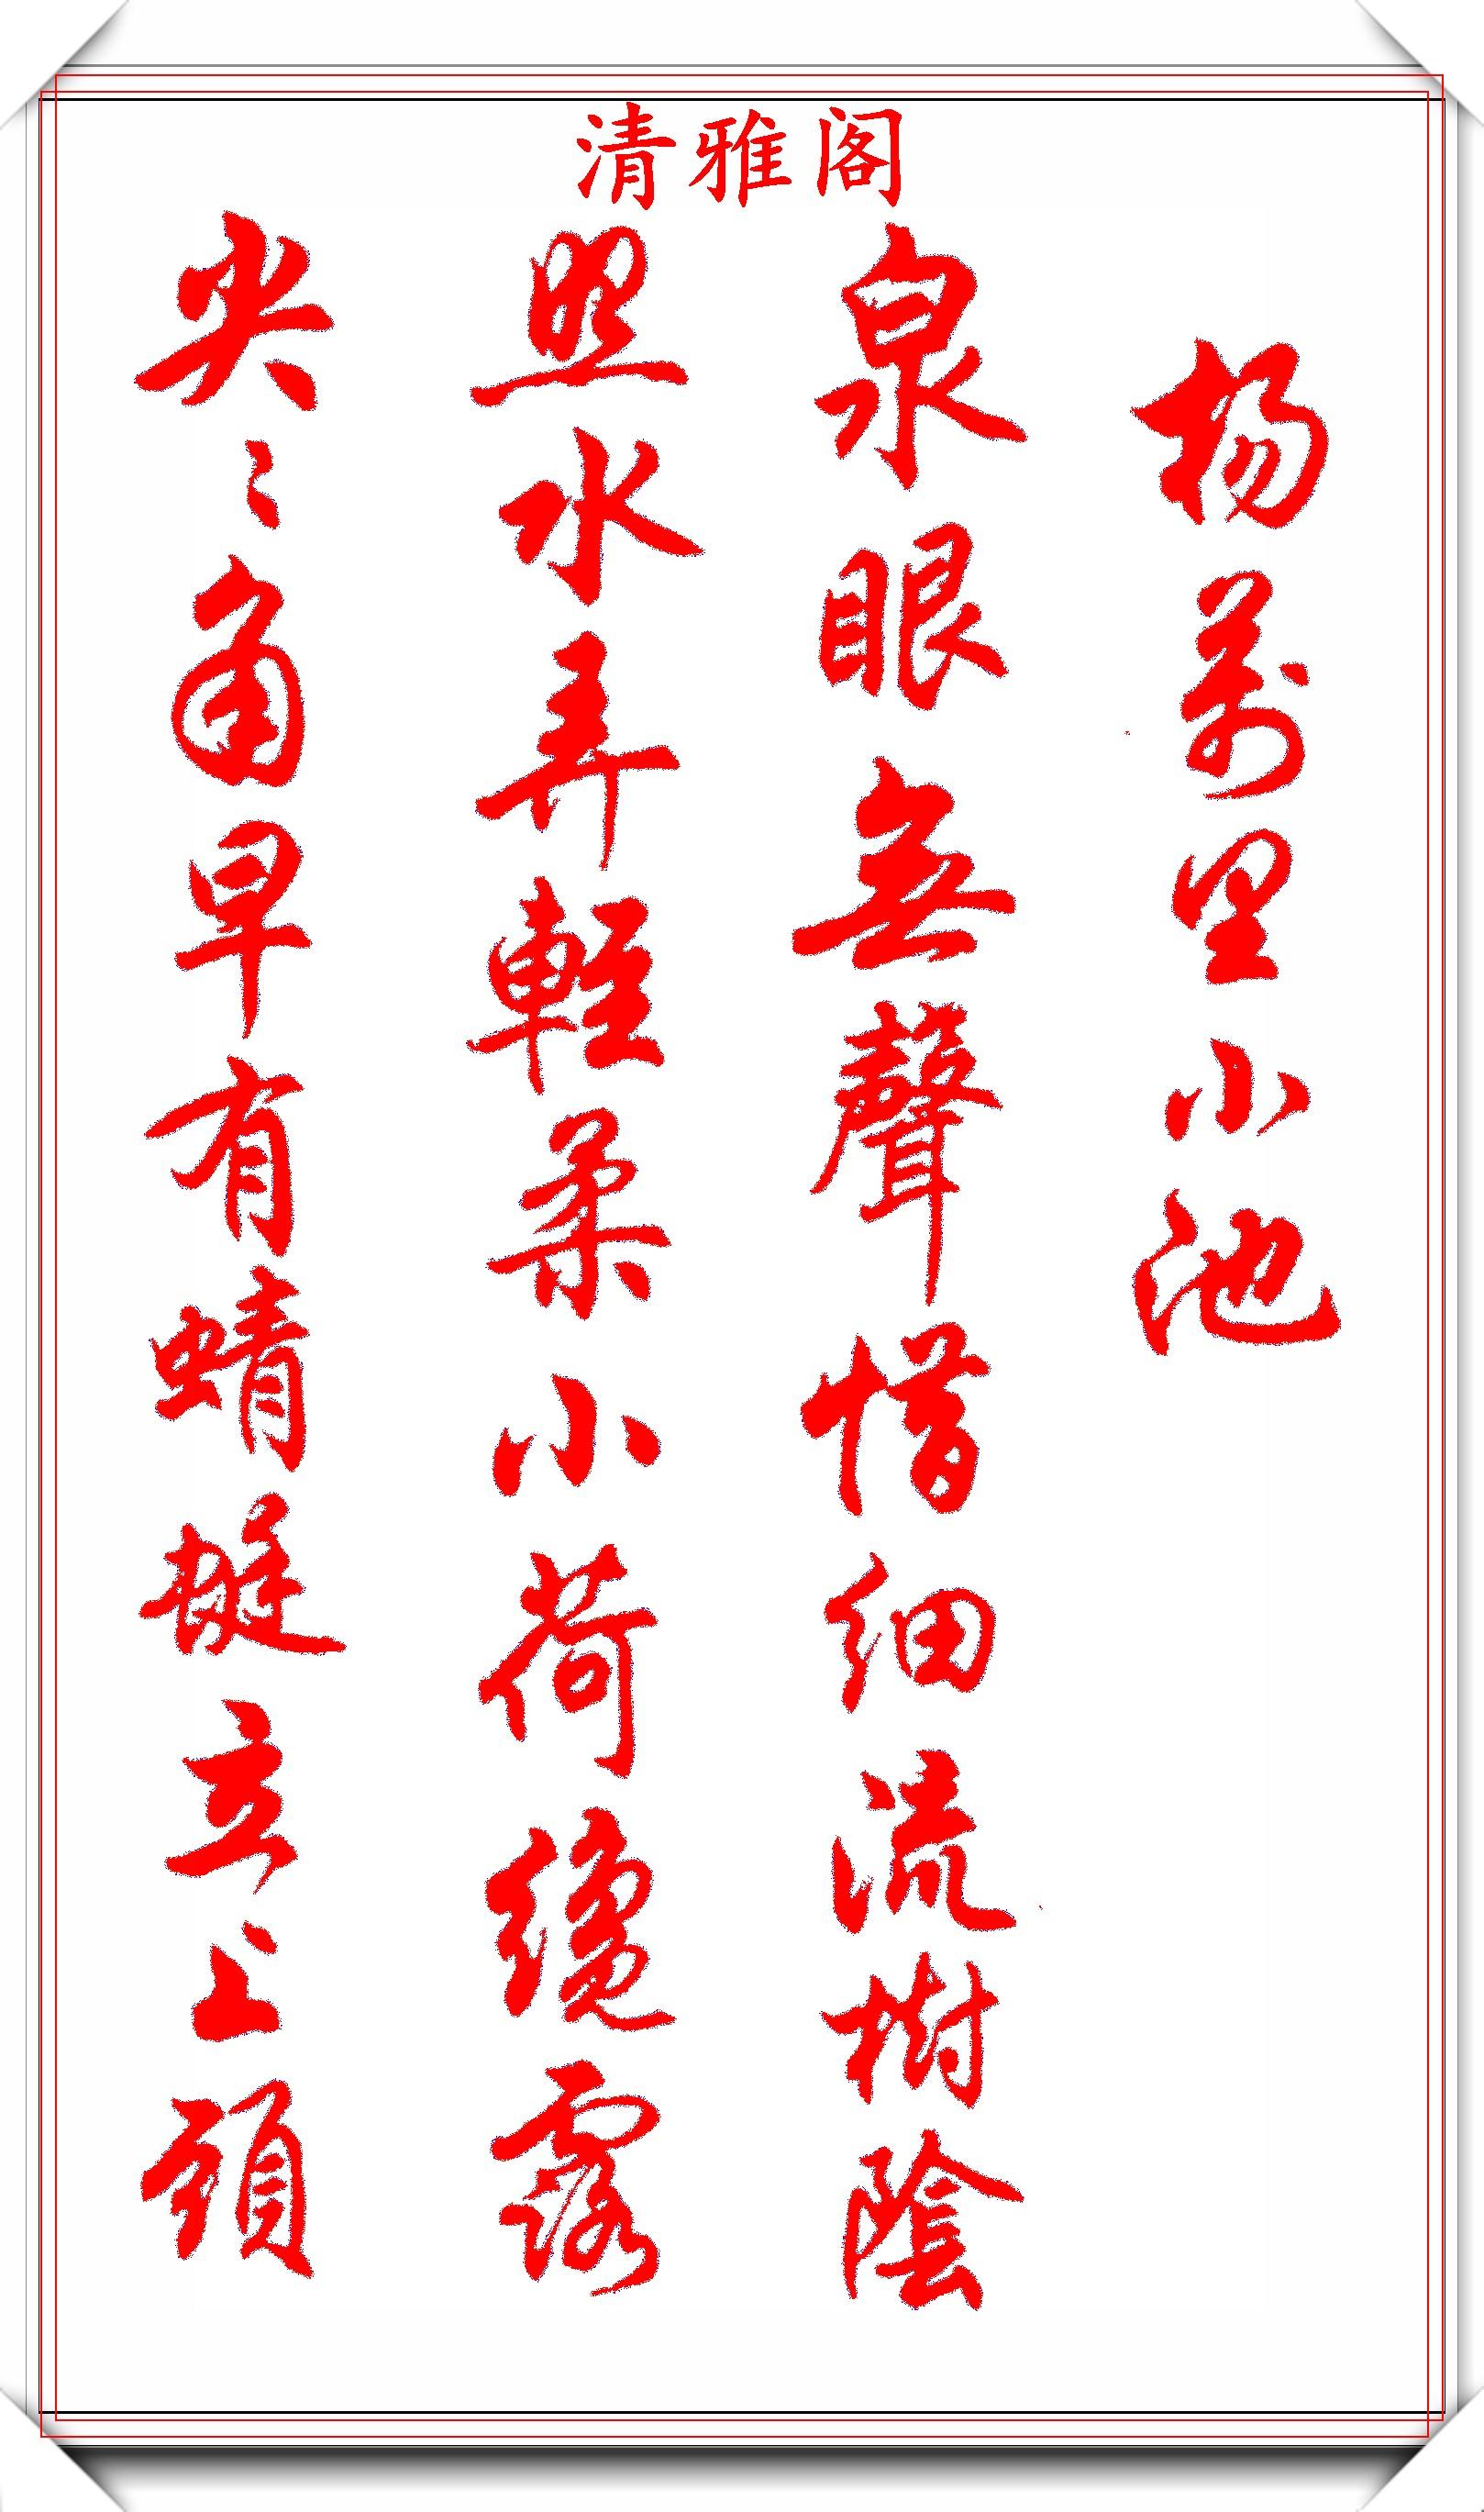 清雅阁
杨萬里小池
泉眼無聲惜細流樹陰
照水弄輕柔小荷纔露
尖〻角早有蜻蜓立上頭